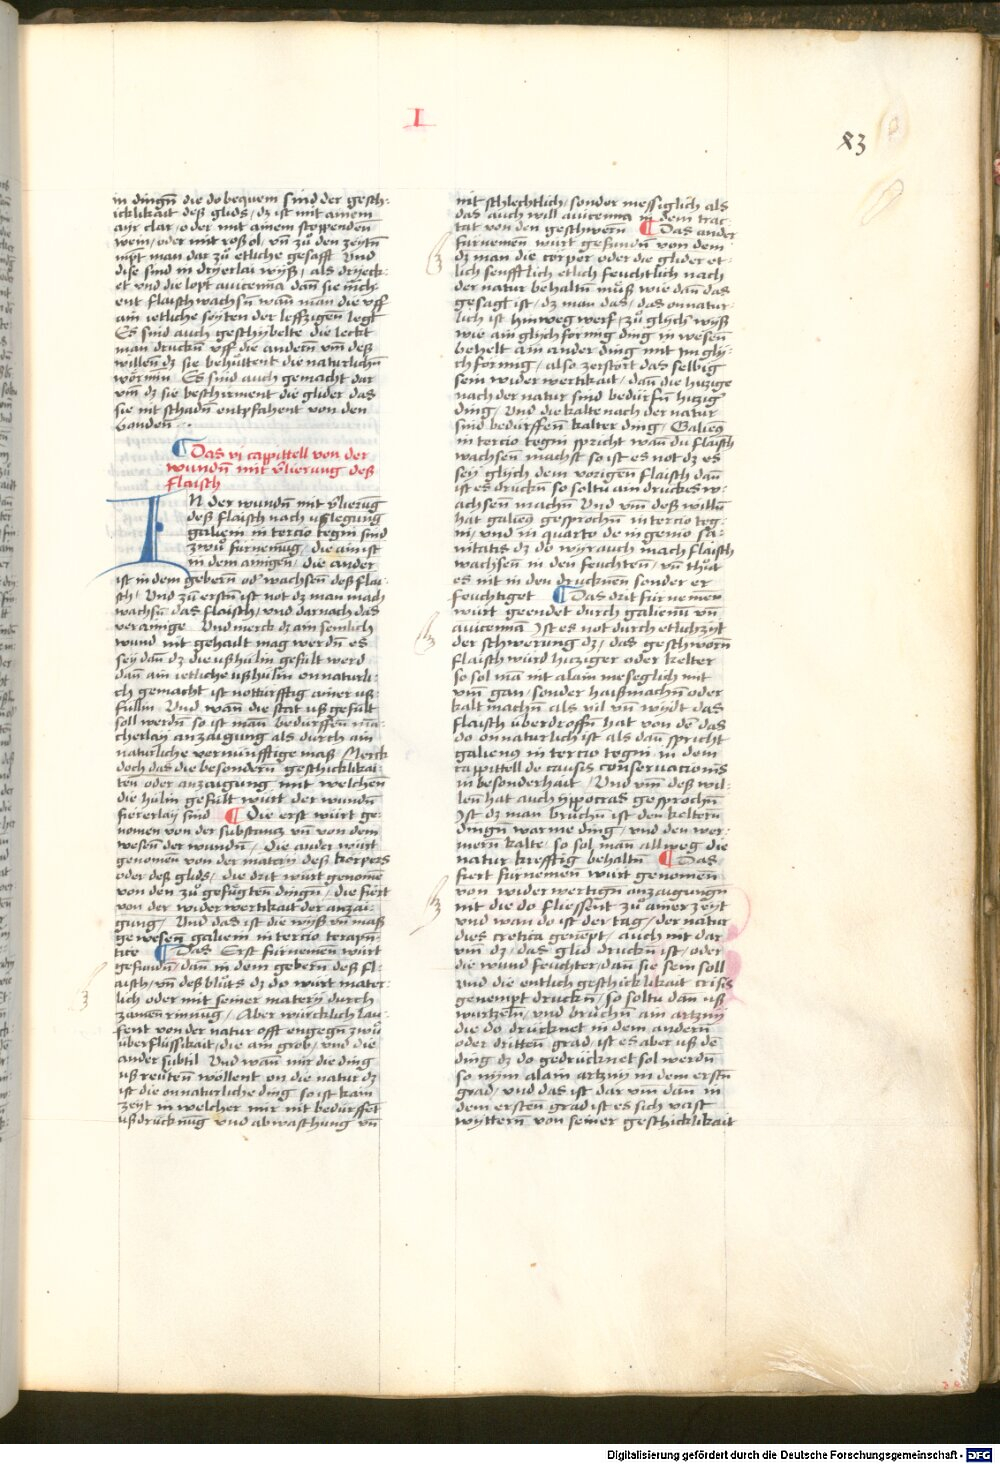 I
83
in dingn̄ die do bequem sind der gesch-
icklikait deß glids / dz ist mit ainem
ayr clar / oder mit ainem stoppenden
wein / oder mit roß ol / vn̄ zů den zeytn̄
nypt man dar zů etliche gesafft Vnd
dise sind in dryerlai wyß / als dryeck-
et vnd die lopt auicenna dann sie mch-
ent flaisch wachsn̄ wann man die vff
ain ietliche seyten der leffzigen legt
Es sind auch geschybelte die leckt
man druckn̄ vff die andern vm̄ deß
willen dz sie behüttent die naturlichn̄
wörmin Es sind auch gemacht dar
vm̄ dz sie beschirment die glider das
sie nit schadn̄ entpfahent von den
banden
Das vi cappittell von der
wundn̄ mit v̄lierung deß
flaisch
IN der wundn̄ mit v̄lierūg
deß flaisch nach vßlegung
galieni in tercio tegni sind
zwů fürnemūg / die ain ist
in dem ainigen / die ander
ist in dem gebern̄ od' wachsen deß flai-
sch / Vnd zů erstn̄ ist not dz man mach
wachsn̄ das flaisch / vnd darnach das
verainige Vnd merck dz ain semlich
wund nit gehailt mag werdn̄ es
sey dan̄ dz die vßhülin gefült werd
dan̄ ain ietliche vßhülin onnaturli-
ch gemacht ist notturfftig ainer vß-
füllin Vnd wan̄ die stat vß gefült
soll werdn̄ so ist man̄ bedürffen ma-
cherlay anzaigung als durch ain
naturliche vernünfftige maß Merck
doch das die besondern geschicklikai-
ten oder anzaigung mit welchen
die hülin gefült würt der wundn̄
fiererlay sind Die erst würt ge-
nomen von der substancz vn̄ von dem
wesen der wundn̄ Die ander würt
genomen von der matery deß körpers
oder deß glids / die drit würt genomē
von den zů gefügten dingn̄ / die fiert
von der widerwertikait der anzai-
gung / Vnd das ist die wyß vn̄ maß
gewesen galieni in tercio terapn̄-
tice Das Erst fürnemen würt
gefundn̄ / dan̄ in dem gebern̄ deß fl-
aisch / vn̄ deß blůts dz do würt mater-
lich oder mit seiner matery durch
zůmenrinnūg / Aber würcklich lau-
fent von der natur offt engegn̄ zwů
überflüssikait / die ain grob / vnd die
ander subtil Vnd wan̄ mir die ding
vß reüten wöllent on die natur dz
ist die onnaturliche ding so ist kain
zeyt in welcher mir nit bedürffet
vßdrücknūg vnd abwaschung vn̄
nit schlechtlich / sonder messiglich als
das auch will auicenna in dem trac-
tat von den geschwern Das ander
fürnemen würt gefundn̄ von dem
dz man die cörper oder die glider et-
lich senfftlich etlich feuchtlich nach
der natur behaltn̄ můß wie dan̄ das
gesagt ist / dz man das / das onnatur-
lich ist hinweg werf / zů glych' wyß
wie ain glych förmig ding in wesen
behelt ain ander ding mit im gly-
chförmig / also zerstört das selbig
sein widerwertikait / dan̄ die hiczige
nach der natur sind bedürfn̄ hiczig
ding / Vnd die kalte nach der natur
sind bedürffen kalter ding / Galieq
in tercio tegni spricht wan̄ du flaisch
wachsen machst so ist es not dz es
sey glych dem vorigen flaisch dan̄
ist es druckn̄ so soltu ain druckes w-
achsen machn̄ Vnd vm̄ deß willn̄
hat galieq gesprochn̄ in tercio teg-
ni / vnd in quarto de ingenio sa-
nitatis dz do wyrauch mach flaisch
wachsen in den feuchten / vn̄ thůt
es nit in den drucknen sonder er
feuchtiget Das drit fürnemen
würt geendet durch galienū vn̄
auicennā Ist es not durch etlich zyt
der schwerung dz / das geschworn̄
flaisch würd hicziger oder kelter
so sol mā nit alain meseglich mit
vm̄ gan / sonder haißmachn̄ oder
kalt machn̄ als vil vn̄ wydt das
flaisch überdroffn̄ hat von dē das
do onnaturlich ist als dan̄ spricht
galienq in tercio tegni in dem
cappittell de causis conseruacionis
in besonderhait / Vnd vm̄ deß wil-
len hat auch yppocras gesprochn̄
Ist dz man bruchn̄ ist den keltern
dingn̄ warme ding / vnd den wer-
mern kalte / so sol man allweg die
natur krefftig behaltn̄ Das
fiert fürnemen würt genomen
von widerwertign̄ anzaigungn̄
mit die do fliessent zů ainer zeyt
vnd wan do ist der tag / der natur
dies cretica genēpt / auch mit dar
vm̄ dz / das glid druckn̄ ist / oder
die wund feuchter / dan̄ sie sein soll
vnd die entlich geschicklikait crisis
genempt druckn̄ / so soltu dan̄ vß
wurczeln̄ / vnd bruchn̄ ain artzny
die do drücknet in dem andern
oder dritten grad / ist es aber vß dē
ding dz do gedrücknet sol werdn̄
so nym alain artzny in dem erstn̄
grad / vnd das ist dar vm̄ dan̄ in
dem ersten grad ist es sich vast
wyttern von seiner geschicklikait
Digitalisierung gefördert durch die Deutsche Forschungsgemeinschaft - DFG